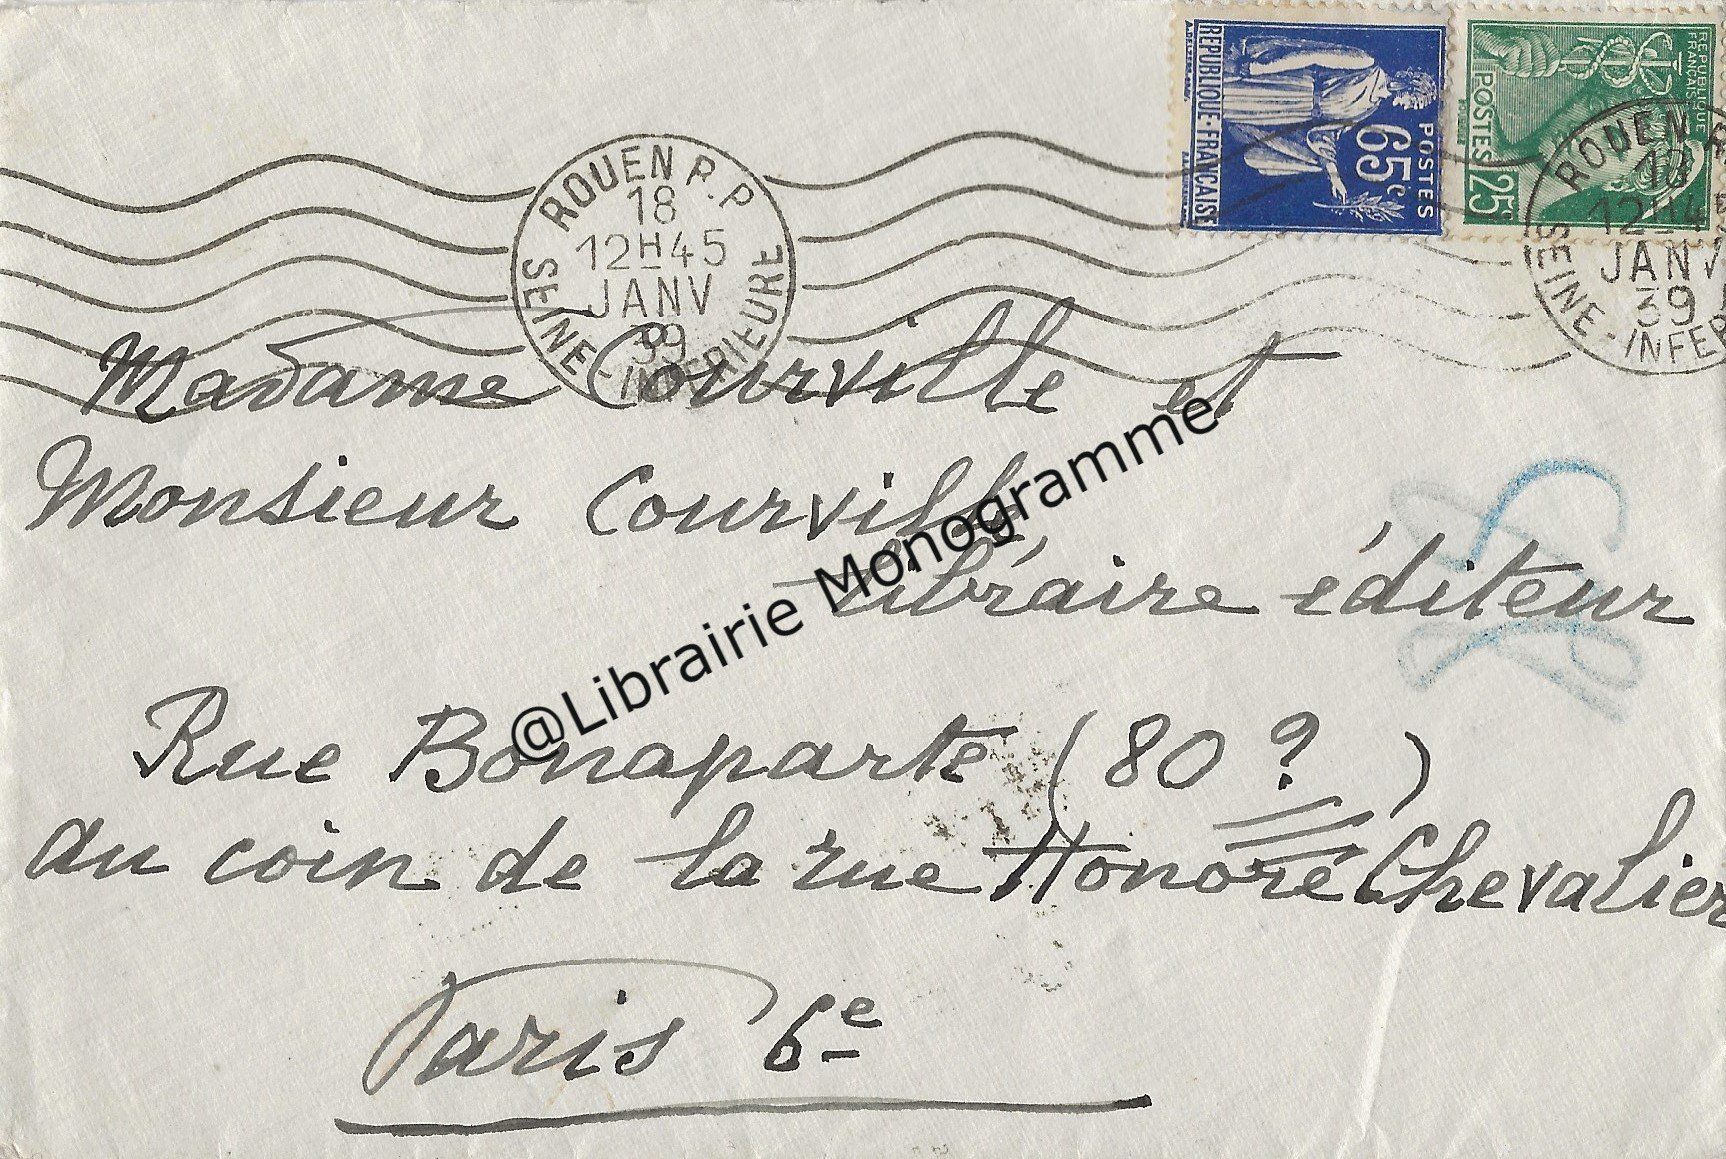 REPUBLIQUE · FRANÇAISE
65c
POSTES
REPUBLIQUE
FRANÇAISE
POSTES
25c
ROUEN R.P.
18
12H45
JANV
39
SEINE-INFERIEURE
ROUEN R
18
12H45
JANV
39
SEINE-INFER
Madame Courville et
Monsieur Courville
Libraire éditeur
@Librairie Monogramme
Rue Bonaparte (80 ?)
au coin de la rue Honoré Chevalier
Paris 6e